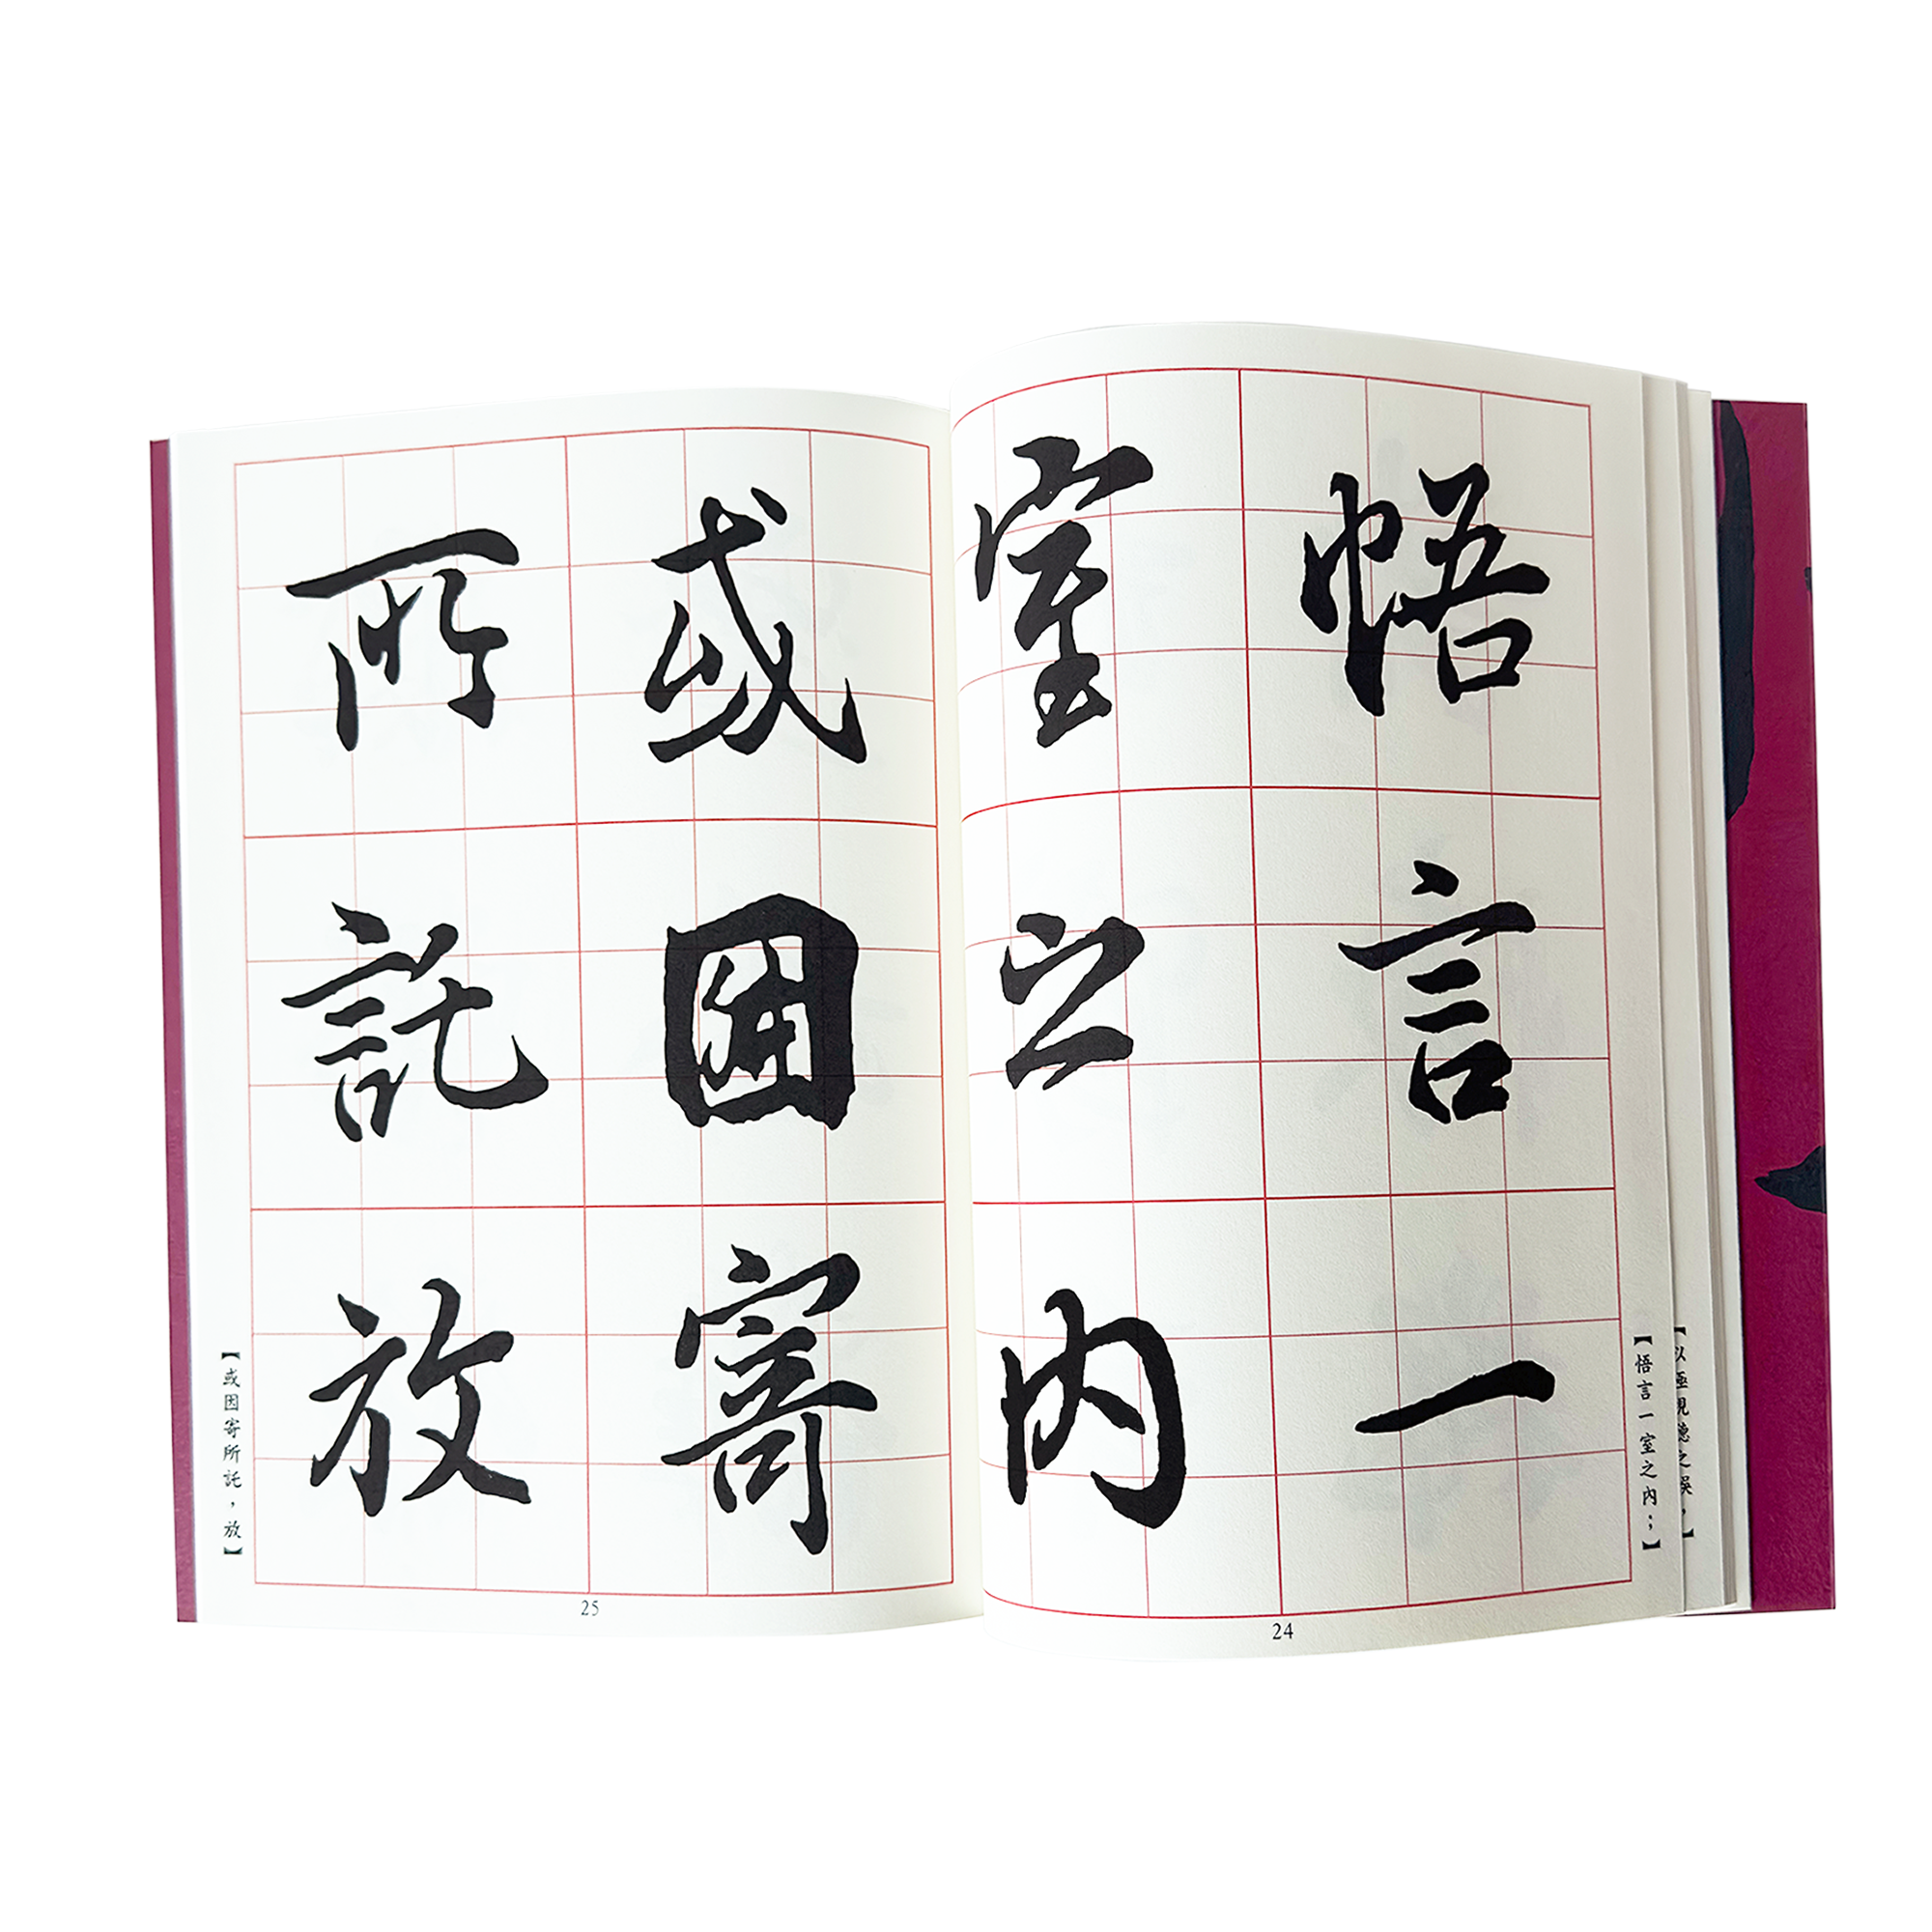 悟言一
室之内
【悟言一室之內；】
24
或因寄
所託放
【或因寄所託，放】
25
以極視聽之娛，】